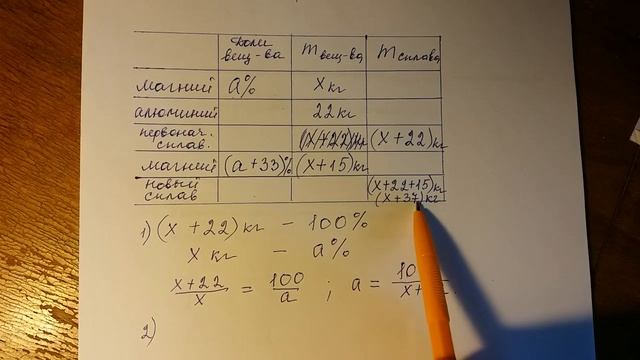 доли вещ-ва m вещ-ва m сплава
магний a% x кг
алюминий 22 кг
первонач. сплав. (x+22) кг
магний (a+33)% (x+15) кг
новый сплав (x+22+15) кг
(x+37) кг
1) (x+22) кг - 100%
x кг - a%
x+22/x = 100/a ; a = 10
2)